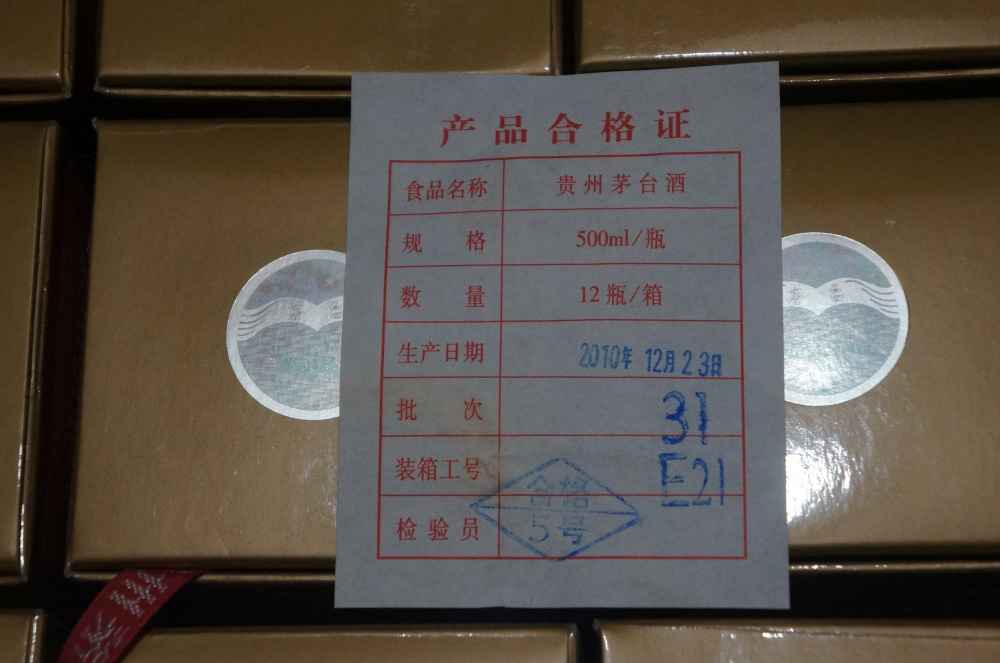 产品合格证
食品名称 贵州茅台酒
规 格 500ml/瓶
数 量 12瓶/箱
生产日期 2010年 12月23日
批 次 31
装箱工号 E21
检验员 合格
5号